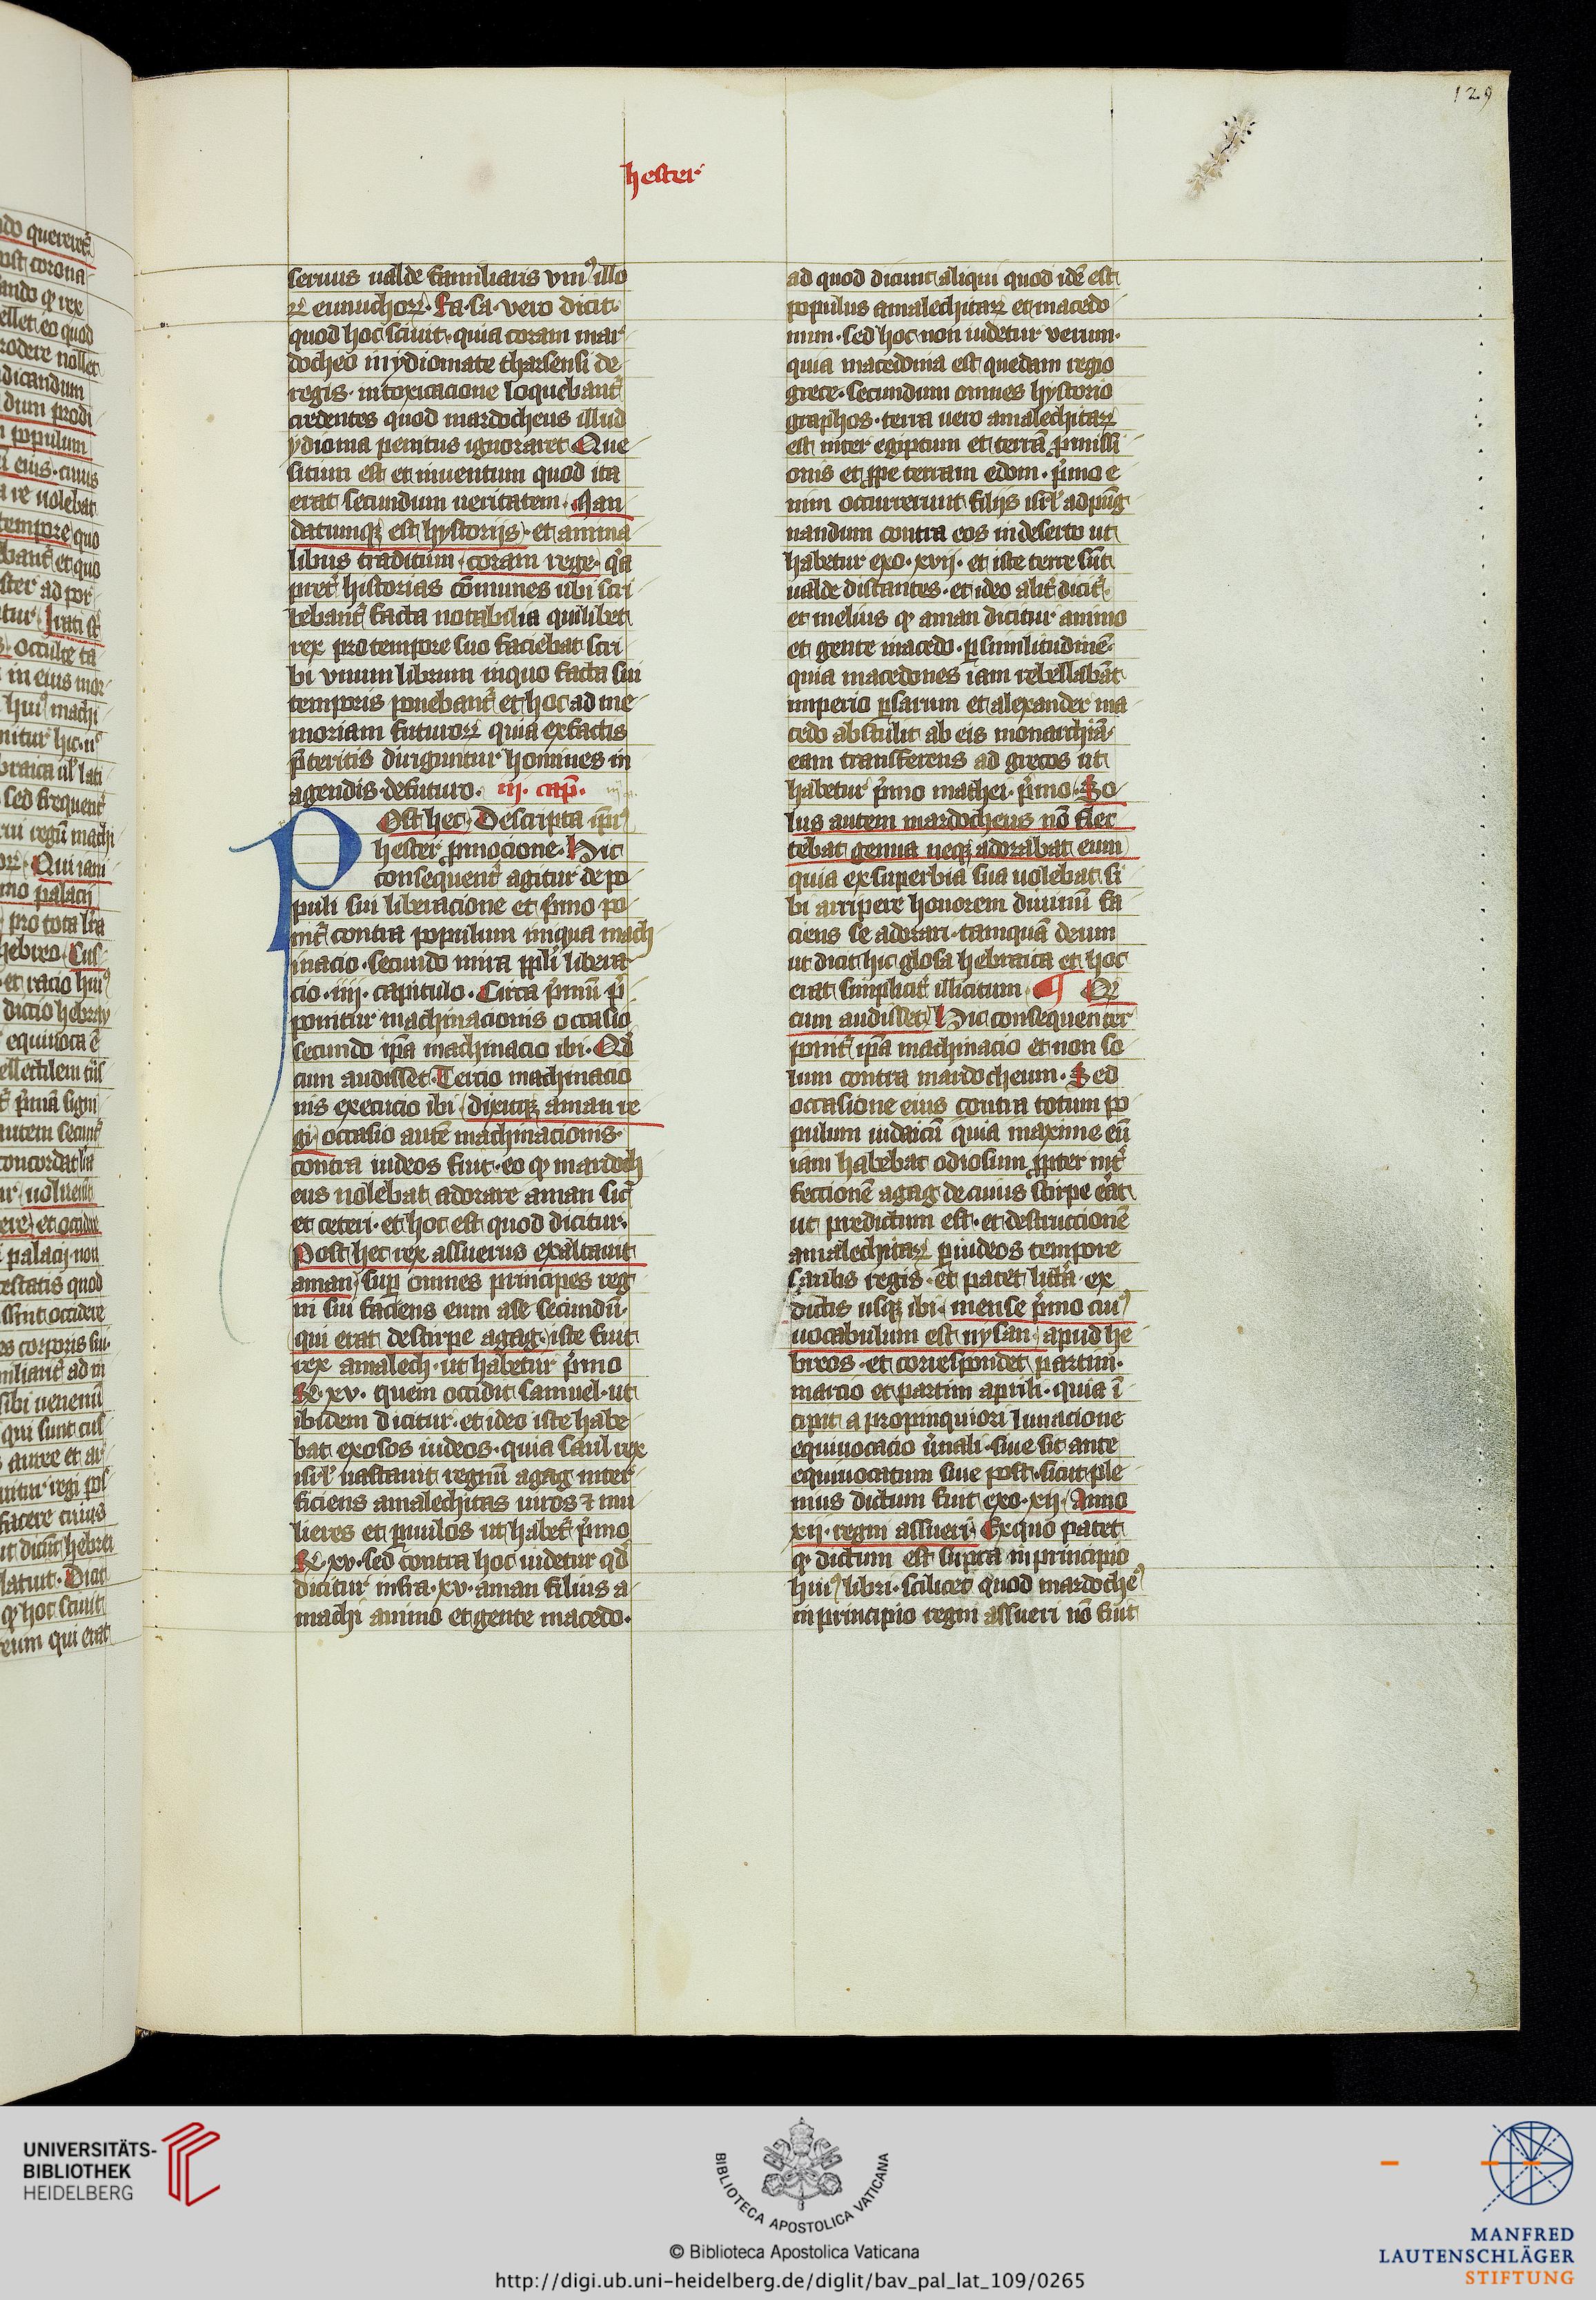 129
hester
seruus ualde familiaris vniꝰ illo
ꝝ eunuchoꝝ. Ra. sa. vero dicit.
quod hoc sciuit. quia coram mar
docheo in ydiomate tharsensi de
regis. intoxicacione loquebant᷑
credentes quod mardocheus illud
ydioma penitus ignoraret Que
situm est et inuentum quod ita
erat secundum ueritatem. Man
datumqꝫ est hystorijs. et anna
libus traditum. coram rege. q̓a
pret᷑ historias cōmunes ubi scri
bebant᷑ facta notabilia quilibet
rex pro tempore suo faciebat scri
bi vnum librum in quo facta sui
temporis ponebant᷑ et hoc ad me
moriam futuroꝝ quia ex factis
p̄teritis diriguntur homines in
agendis. de futuro. iij. cap̄.
Post hec. Descripta ip̄iꝰ
hester ꝓmocione. Hic
consequent᷑ agitur de po
puli sui liberacione et p̓mo po
nit᷑ contra populum iniqua mach
inacio. secundo mira ppl̓i libera
cio. iiij. capitulo. Circa p̓mū p̓
ponitur machinacionis occasio
secundo ip̄a machinacio ibi. Qd̓
cum audisset. Tercio machinacio
nis execucio ibi. dixitqꝫ aman re
gi. occasio autē machinacionis.
contra iudeos fuit. eo ꝙ mardoch
eus nolebat adorare aman sic̄
et ceteri. et hoc est quod dicitur.
Post hec rex assuerus exaltauit
aman. suꝑ omnes principes reg
ni sui faciens eum a se secundū.
qui erat de stirpe agag. iste fuit
rex amalech. ut habetur p̓mo
R. xv. quem occidit samuel. ut
ibidem dicitur. et ideo iste habe
bat exosos iudeos. quia saul rex
isrl̓ uastauit regnū agag inter
ficiens amalechitas uiros ⁊ mu
lieres et ꝑuulos ut habet᷑ p̓mo
R. xv. sed contra hoc uidetur qd̓
dicitur infra. xv. aman filius a
machi animo et gente macedo.
ad quod dicunt aliqui quod idē est
populus amalechitaꝝ et macedo
num. sed hoc non uidetur verum.
quia macedonia est quedam regio
grece. secundum omnes hystorio
graphos. terra uero amalechitaꝝ
est inter egiptum et terrā ꝓmissi
onis et ꝓpe terram edom. p̓mo e
nim occurrerunt filijs isrl̓ ad pūg
nandum contra eos in deserto ut
habetur exo. xvij. et iste terre sūt
ualde distantes. et ideo alit᷑ dicit᷑.
et melius ꝙ aman dicitur animo
et gente macedo. ꝑ similitudinē.
quia macedones iam rebellabāt
imperio ꝑsarum et alexander ma
cedo abstulit ab eis monarchiā.
eam transferens ad grecos ut
habetur p̓mo machei. p̓mo. So
lus autem mardocheus nō flec
tebat genua neqꝫ adorabat eum
quia ex superbia sua uolebat si
bi arripere honorem diuinū fa
ciens se adorari. tamquā deum
ut dicit hic glosa hebraica et hoc
erat simplicit᷑ illicitum. ¶ Qd̓
cum audisset. Hic consequenter
ponit᷑ ip̄a machinacio et non so
lum contra mardocheum. Sed
occasione eius contra totum po
pulum iudaicū quia maxime eū
iam habebat odiosum ꝓpter int᷑
fectionē agag de cuius stirpe erat
ut predictum est. et destruccionē
amalechitaꝝ ꝑ iudeos tempore
saulis regis. et patet litt̓a. ex
dictis usqꝫ ibi. mense p̓mo cuiꝰ
uocabulum est nysan. apud he
breos. et correspondet partim.
marcio et partim aprili. quia ī
cipit a propinquiori lunacione
equinocacio ūnali. siue sit ante
equinocatum siue post. sicut ple
nius dictum fuit exo. xij. Anno
xij. regni assueri. Ex quo patet
ꝙ dictum est supra in principio
huiꝰ libri. scilicet quod mardocheꝰ
in principio regni assueri nō fuit
UNIVERSITÄTS-
BIBLIOTHEK
HEIDELBERG
BIBLIOTECA APOSTOLICA VATICANA
© Biblioteca Apostolica Vaticana
http://digi.ub.uni-heidelberg.de/diglit/bav_pal_lat_109/0265
MANFRED
LAUTENSCHLÄGER
STIFTUNG